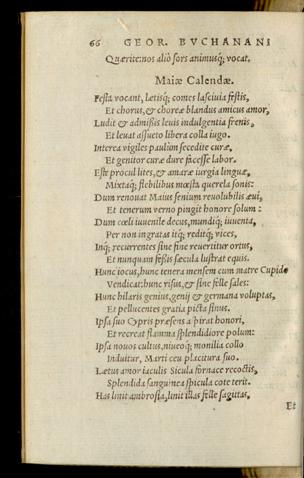 66 GEOR. BVCHANANI
Quærite: nos aliò sors animusq́; vocat.
Maiæ Calendæ.
Festa vocant, lætisq́; comes lasciuia festis,
Et chorus, & choreæ blandus amicus amor,
Ludit & admissis leuis indulgentia frenis,
Et leuat assueto libera colla iugo.
Interea vigiles paulùm secedite curæ,
Et genitor curæ dure facesse labor.
Este procul lites, & amaræ iurgia linguæ,
Mixtaq́; flebilibus mœsta querela sonis:
Dum renouat Maius senium reuolubilis æui,
Et tenerum verno pingit honore solum:
Dum cœli iuuenile decus, mundiq́; iuuenta,
Per non ingratas itq́; reditq́; vices,
Inq́; recurrentes sine fine reuertitur ortus,
Et nunquam fessis sæcula lustrat equis.
Hunc iocus, hunc tenera mensem cum matre Cupido
Vendicat: hunc risus, & sine felle sales:
Hunc hilaris genius, genij & germana voluptas,
Et pellucentes gratia picta sinus.
Ipsa suo Cypris præsens aspirat honori,
Et recreat flamma splendidiore polum:
Ipsa nouos cultus, niueoq́; monilia collo
Induitur, Marti ceu placitura suo.
Lætus amor iaculis Sicula fornace recoctis,
Splendida sanguinea spicula cote terit.
Has linit ambrosia, linit illas felle sagittas,
Et